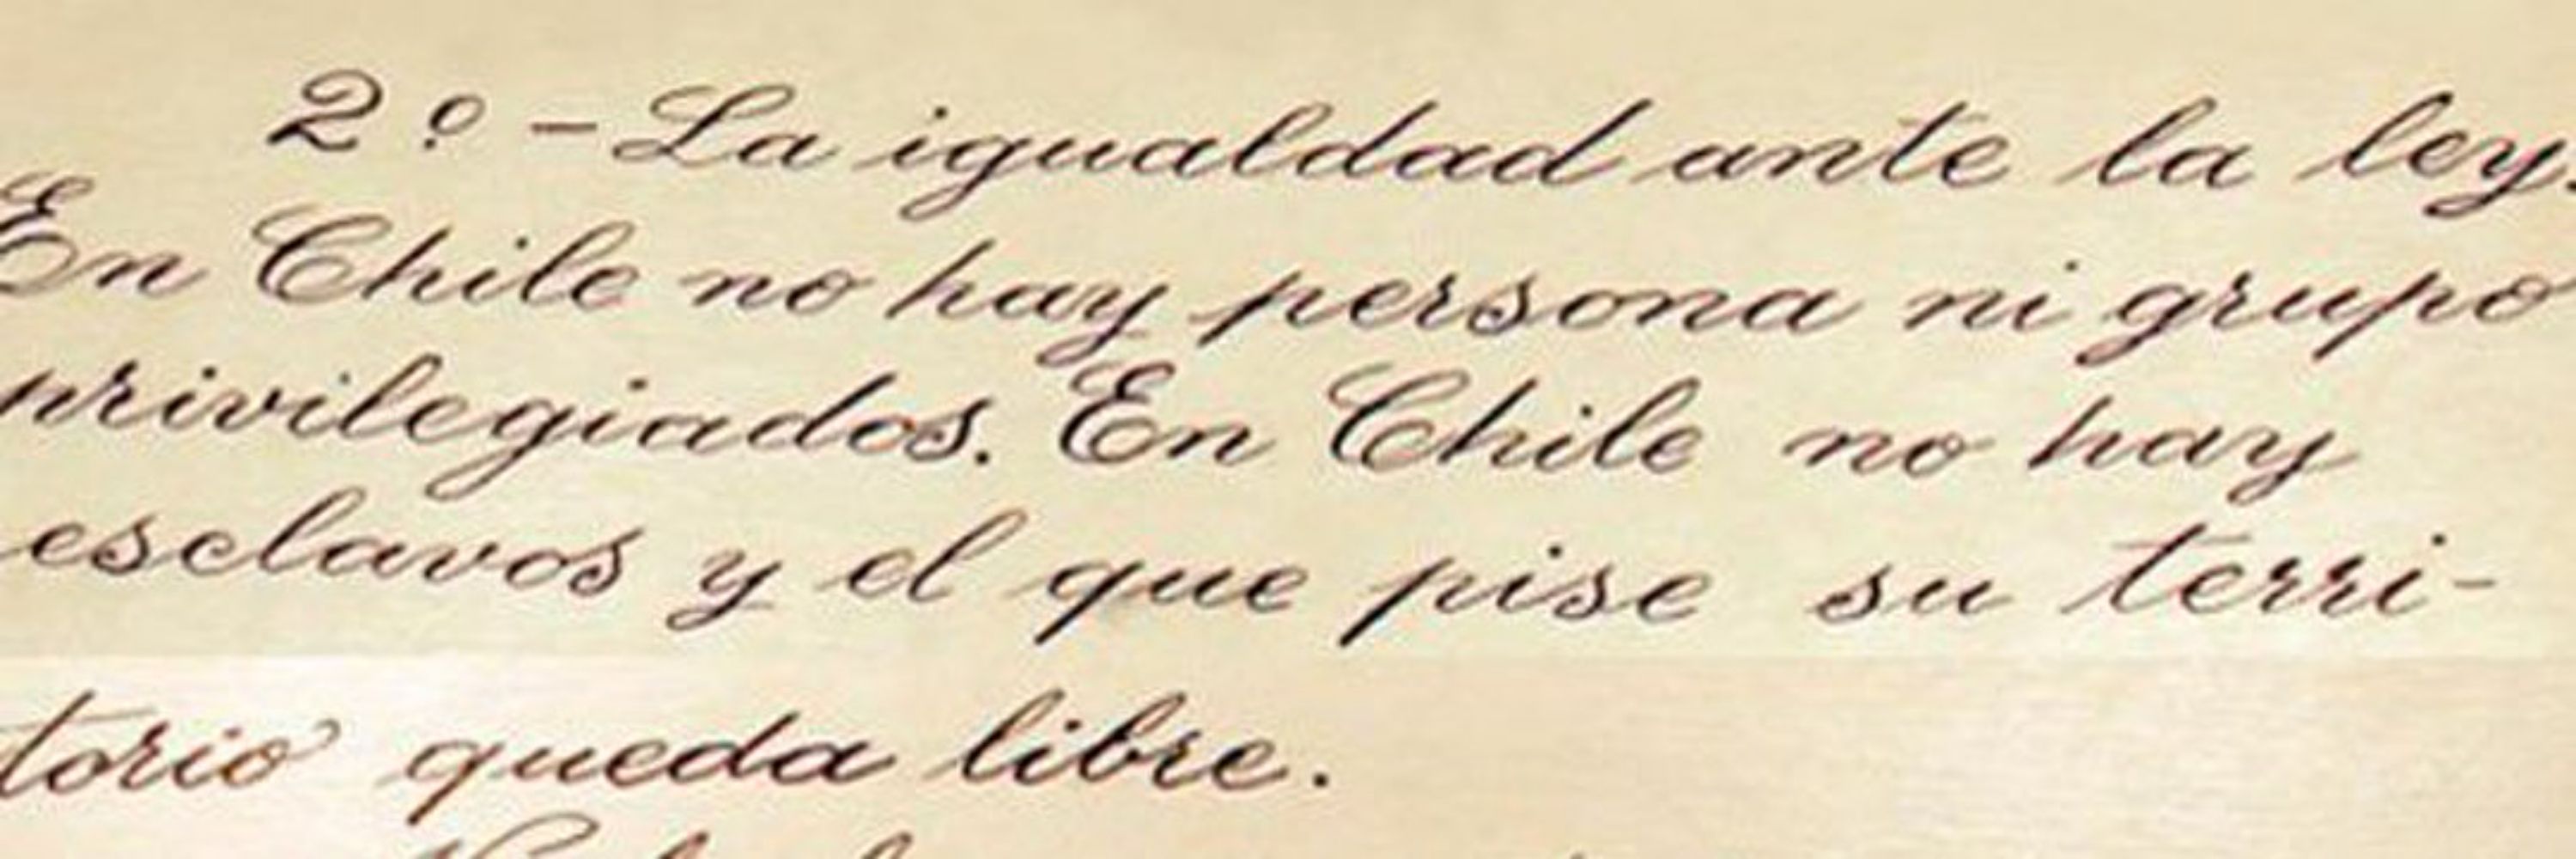 2º - La igualdad ante la ley.
En Chile no hay persona ni grupo
privilegiados. En Chile no hay
esclavos y el que pise su terri-
torio queda libre.